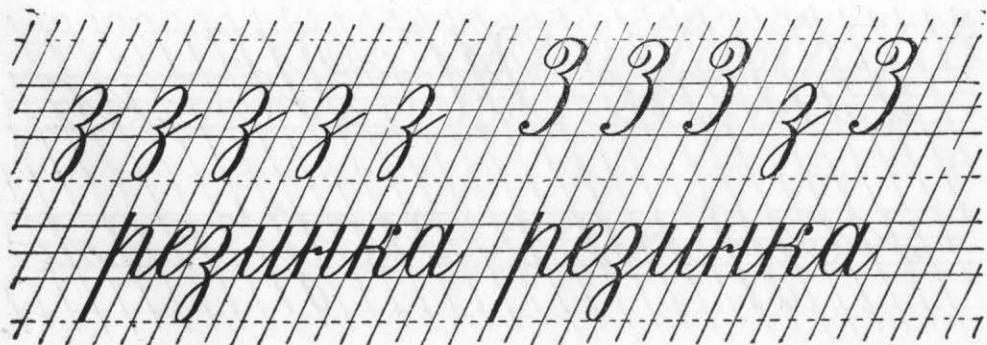 з з з з з З З З з З
резинка резинка